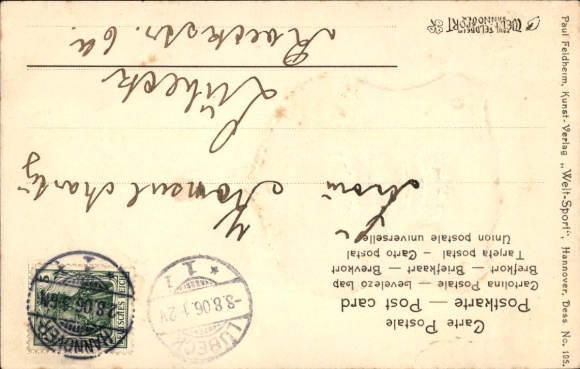 Carte Postale
Postkarte — Post card
Carolina Postale — levelező lap
Brefkort — Briefkaart — Brevkort
Tarjeta postal — Carto postal
Union postale universelle
Frau
Konsul
Lübeck
Roeckstr. 6a
Paul Feldheim, Kunst-Verlag „Welt-Sport", Hannover, Dess No. 105.
WELT-SPORT
PAUL FELDHEIM
HANNOVER
HANNOVER
2.8.06
DEUTSCHES REICH
LÜBECK
-3.8.06.1-2V
* 1